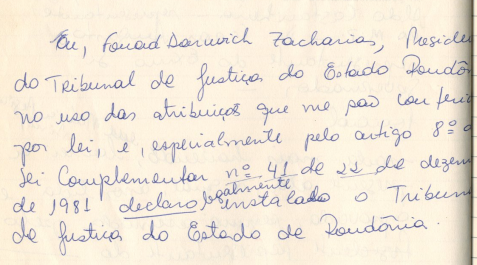 Eu, Fouad Darwich Zacharias, Preside
do Tribunal de Justiça do Estado Rondôn
no uso das atribuições que me são conferid
por lei, e, especialmente pelo artigo 8º d
Lei Complementar nº 41 de 22 de dezem
de 1981 declaro legalmente instalado o Tribun
de Justiça do Estado de Rondônia.